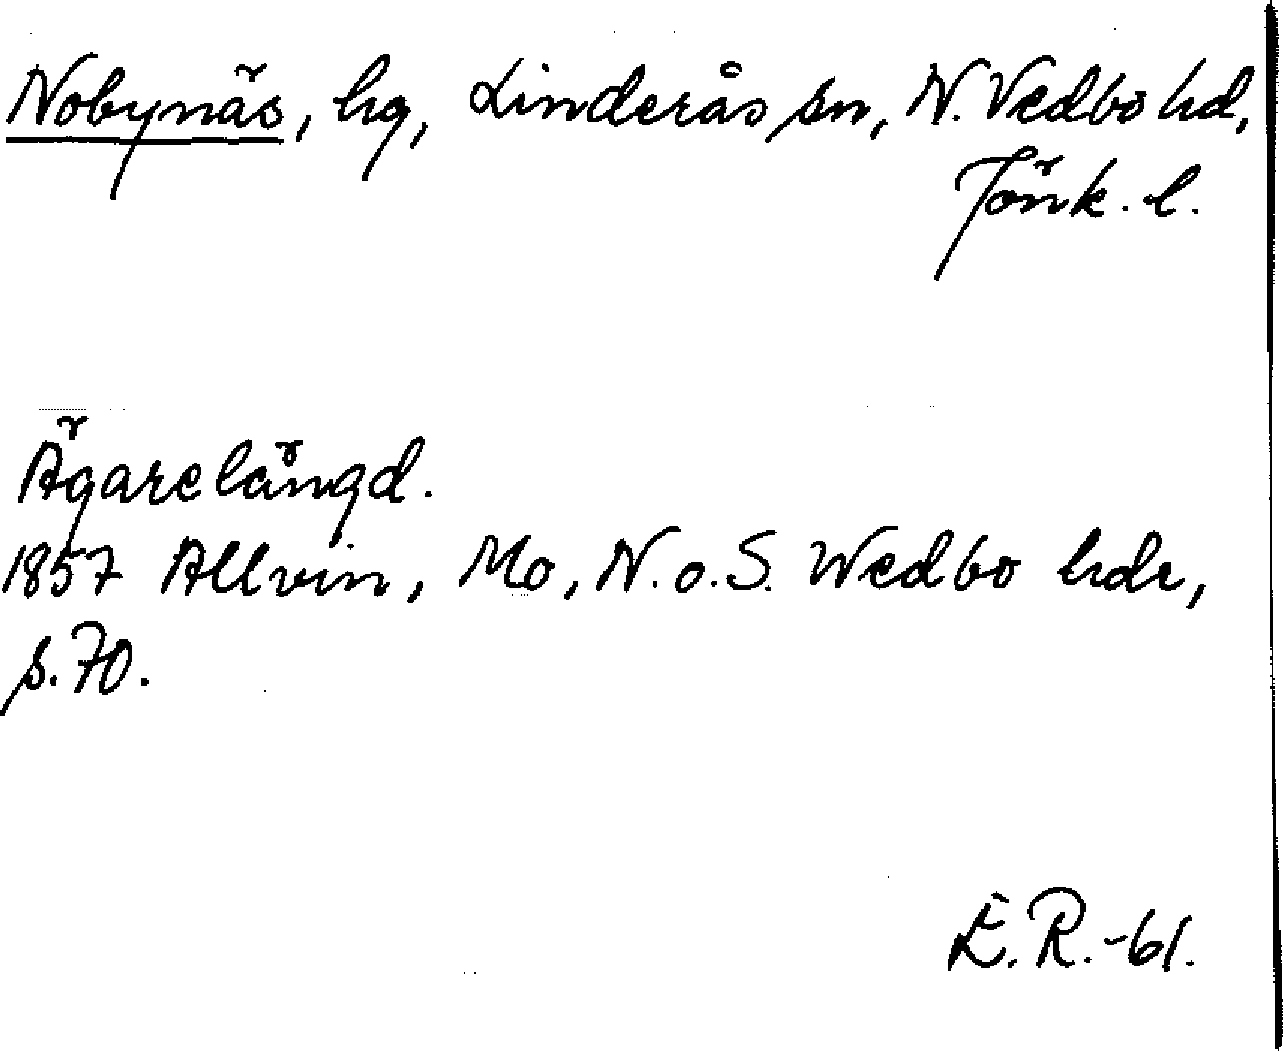 Nobynäs, hg, Linderås sn, N. Vedbo hd,
Jönk. l.
Ägarelängd.
1857 Allvin, Mo, N. o. S. Wedbo hdr,
s. 70.
E. R. -61.